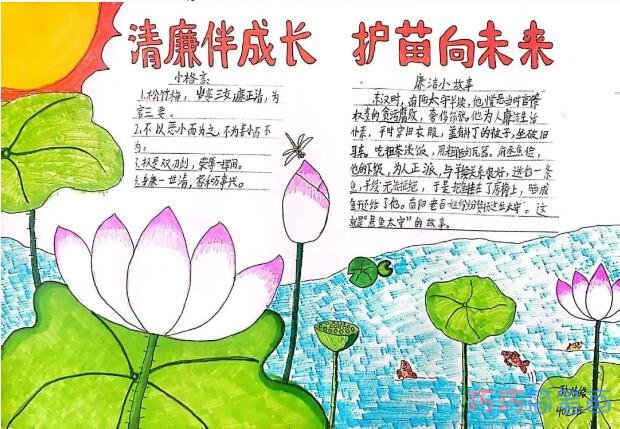 清廉伴成长 护苗向未来
小格言:
1.松竹梅，岁寒三友,廉正清，为
官三要。
2.不以恶小而为之,不为善小而不
为。
3.权是双刃剑，荣辱一瞬间。
4.身廉一世清，家和万事兴。
廉洁小故事
东汉时，南阳太守羊续，他憎恶当时官僚
权贵的贪污腐败，奢侈铺张。他为人廉洁生活
朴素，平时穿旧衣服，盖补丁的被子，坐破旧
马车。吃粗茶淡饭，用粗陋的瓦器。府丞焦俭，
他的下级，为人正派，与羊续关系很好，送他一条
鱼,羊续无法拒绝，于是把鱼挂在了房檐上，晒成
鱼
了他。南阳老百姓
。这
就是"悬鱼太守"的故事。
402班
巧巧简笔画